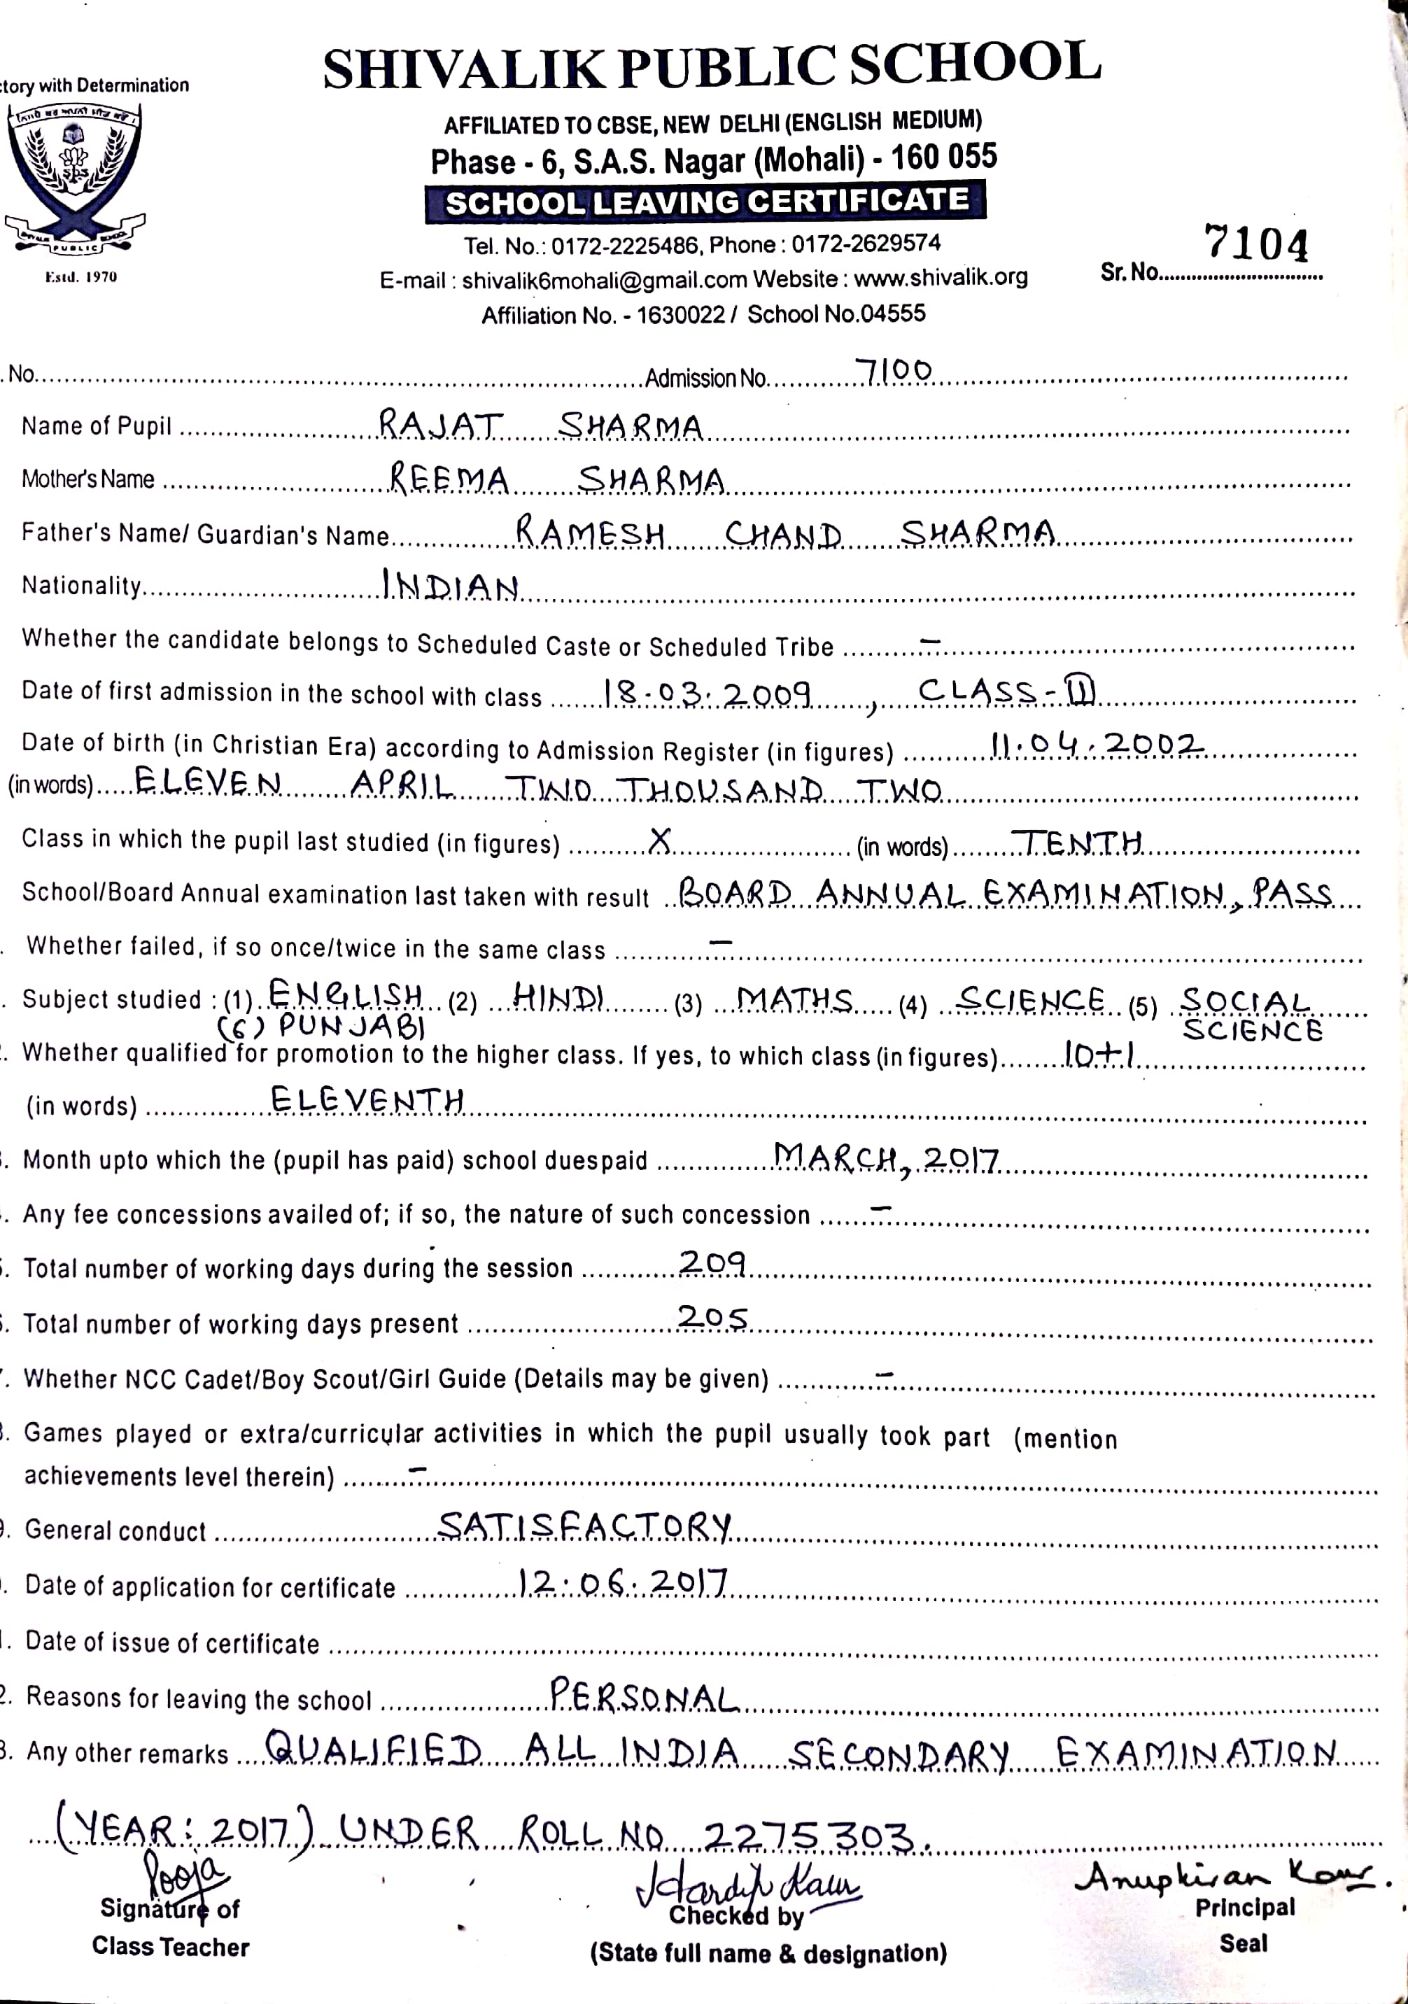 SHIVALIK PUBLIC SCHOOL
tory with Determination
AFFILIATED TO CBSE, NEW DELHI (ENGLISH MEDIUM)
Phase - 6, S.A.S. Nagar (Mohali) - 160 055
SCHOOL LEAVING CERTIFICATE
SPS
PUBLIC SCHOOL
Estd. 1970
Tel. No.: 0172-2225486, Phone : 0172-2629574
7104
E-mail : shivalik6mohali@gmail.com Website : www.shivalik.org
Sr. No..............................
Affiliation No. - 1630022 / School No.04555
. No.....................Admission No. 7100
Name of Pupil RAJAT SHARMA
Mother's Name REEMA SHARMA
Father's Name/ Guardian's Name RAMESH CHAND SHARMA
Nationality INDIAN
Whether the candidate belongs to Scheduled Caste or Scheduled Tribe –
Date of first admission in the school with class 18.03.2009, CLASS-III
Date of birth (in Christian Era) according to Admission Register (in figures) 11.04.2002
(in words) ELEVEN APRIL TWO THOUSAND TWO
Class in which the pupil last studied (in figures) X (in words) TENTH
School/Board Annual examination last taken with result BOARD ANNUAL EXAMINATION, PASS
. Whether failed, if so once/twice in the same class –
. Subject studied : (1) ENGLISH (2) HINDI (3) MATHS (4) SCIENCE (5) SOCIAL SCIENCE
(6) PUNJABI
. Whether qualified for promotion to the higher class. If yes, to which class (in figures) 10+1
(in words) ELEVENTH
. Month upto which the (pupil has paid) school duespaid MARCH, 2017
. Any fee concessions availed of; if so, the nature of such concession –
. Total number of working days during the session 209
. Total number of working days present 205
. Whether NCC Cadet/Boy Scout/Girl Guide (Details may be given) –
. Games played or extra/curricular activities in which the pupil usually took part (mention
achievements level therein) –
. General conduct SATISFACTORY
. Date of application for certificate 12.06.2017
. Date of issue of certificate
2. Reasons for leaving the school PERSONAL
3. Any other remarks QUALIFIED ALL INDIA SECONDARY EXAMINATION
(YEAR: 2017) UNDER ROLL NO 2275303.
Pooja
Hardip Kaur
Anupkiran Kaur.
Signature of
Class Teacher
Checked by
(State full name & designation)
Principal
Seal